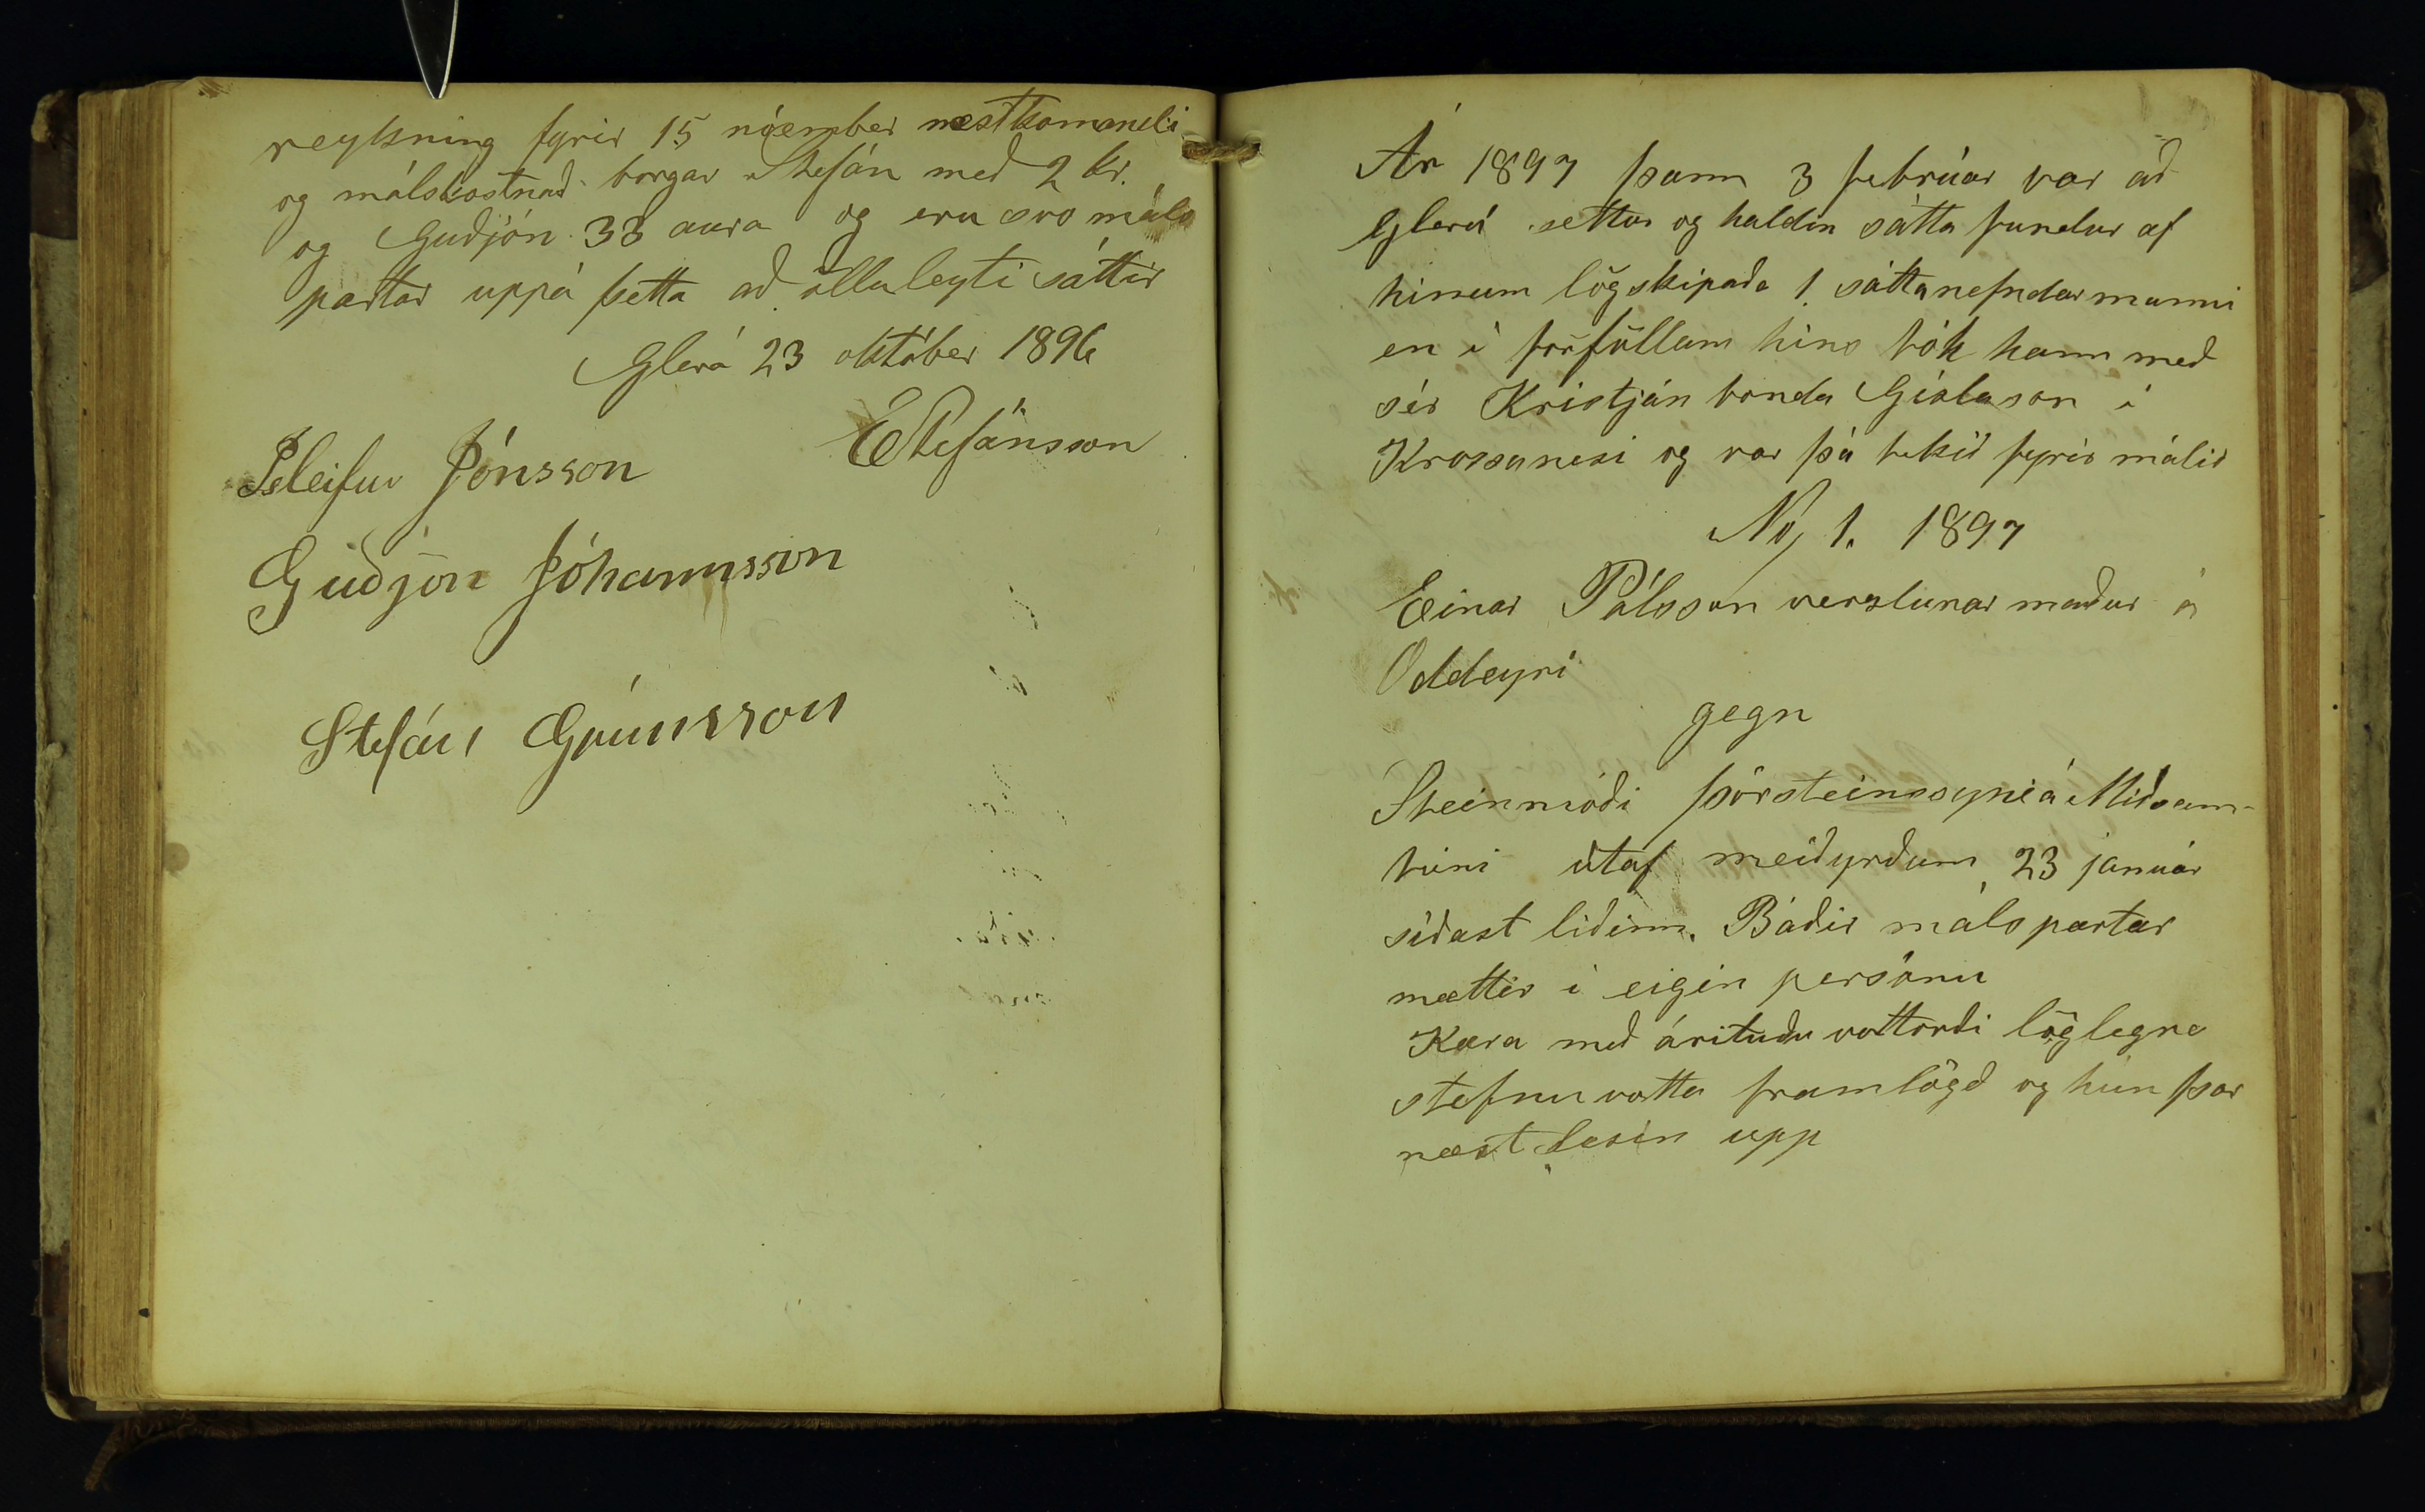 reykning fyrir 15 nóember næstkomandi
og málskostnað borgar Stefán með 2 kr.
og Guðjón 33 aura og eru svo máls
partar uppá þetta að öllu leyti sáttir
Glerá 23 október 1896
EStefánsson
Ísleifur Jónsson
Guðjón Jóhannsson
Stefán Grímsson
Ár 1897 þann 3 febrúar var að
Glerá settur og haldin sátta fundur af
hinum lögskipaða 1. sáttanefndarmanni
en í forföllum hins tók hann með
sér Kristján bonda Gíslason í
Krossanesi og var þá tekið fyrir málið
No/ 1. 1897
Einar Pálsson verslunar maður á
Oddeyri
gegn
Steinmóði Þórsteinssyni á Miðsam-
túni útaf meiðyrðum 23 január
síðast liðinn. Báðir máls partar
mættir í eigin persónu
Kæra með árituðu vottorði löglegra
stefnu votta framlögð og hún þar
næst lesin upp